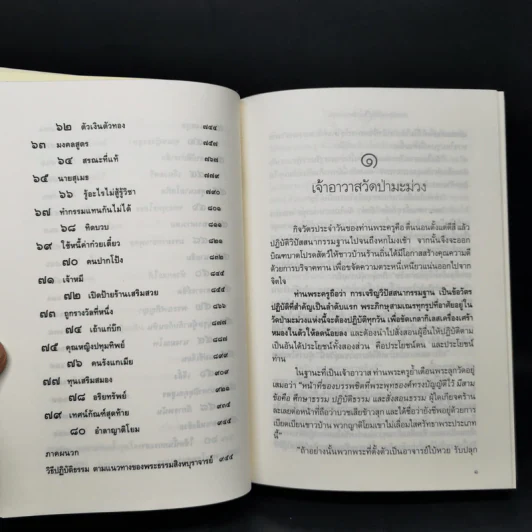 ๖๒ ตัวเงินตัวทอง ๗๔๕
๖๓ มงคลสูตร ๗๕๗
๖๔ สรณะที่แท้ ๗๖๗
๖๕ นายสุเมธ ๗๗๙
๖๖ รู้อะไรไม่สู้รู้วิชา ๗๙๐
๖๗ ทำกรรมแทนกันไม่ได้ ๘๐๑
๖๘ ทิดบวบ ๘๑๑
๖๙ ใช้หนี้ค่าก๋วยเตี๋ยว
๗๐ คนปากโป้ง
๗๑ เจ้าหมี ๘๔๔
๗๒ เปิดป้ายร้านเสริมสวย ๘๕๕
๗๓ ถูกรางวัลที่หนึ่ง ๘๖๖
๗๔ เถ้าแก่บั๊ก
๗๕ คุณหญิงปทุมทิพย์
๗๖ คนรังแกเมีย
๗๗ ทุนเสริมสมอง
๗๘ อริยทรัพย์
๗๙ เทศน์กัณฑ์สุดท้าย
๘๐ อำลาญาติโยม
ภาคผนวก
วิธีปฏิบัติธรรม ตามแนวทางของพระธรรมสิงหบุราจารย์ ๙๕๕
๑
เจ้าอาวาสวัดป่ามะม่วง
กิจวัตรประจำวันของท่านพระครูคือ ตื่นนอนตั้งแต่ตีสี่ แล้ว
ปฏิบัติวิปัสสนากรรมฐานไปจนถึงหกโมงเช้า จากนั้นจึงจะออก
บิณฑบาตโปรดสัตว์ ให้ชาวบ้านร้านถิ่นได้มีโอกาสสร้างคุณความดี
ด้วยการบริจาคทาน เพื่อขจัดความตระหนี่เหนียวแน่นออกไปจาก
จิตใจ
ท่านพระครูถือว่า การเจริญวิปัสสนากรรมฐาน เป็นข้อวัตร
ปฏิบัติที่สำคัญเป็นลำดับแรก พระภิกษุสามเณรทุกรูปที่อาศัยอยู่ใน
วัดป่ามะม่วงแห่งนี้จะต้องปฏิบัติทุกวัน เพื่อขัดเกลากิเลสเครื่องเศร้า
หมองในตัวให้ลดน้อยลง และต้องนำไปสั่งสอนผู้อื่นให้ปฏิบัติตาม
อันเป็นประโยชน์ทั้งสองส่วน คือประโยชน์ตน และประโยชน์
ท่าน
ในฐานะที่เป็นเจ้าอาวาส ท่านพระครูย้ำเตือนพระลูกวัดอยู่
เสมอว่า "หน้าที่ของบรรพชิตที่พระพุทธองค์ทรงบัญญัติไว้ มีสาม
ข้อคือ ศึกษาธรรม ปฏิบัติธรรม และสั่งสอนธรรม ผู้ใดเกียจคร้าน
ละเลยต่อหน้าที่ถือว่าบวชเสียข้าวสุก และได้ชื่อว่ายังชีพอยู่ด้วยการ
เบียดเบียนชาวบ้าน พวกญาติโยมเขาไม่เลื่อมใสศรัทธาพระประเภท
นี้"
"ถ้าอย่างนั้นพวกพระที่ตั้งตัวเป็นอาจารย์ใบ้หวย รับปลุก